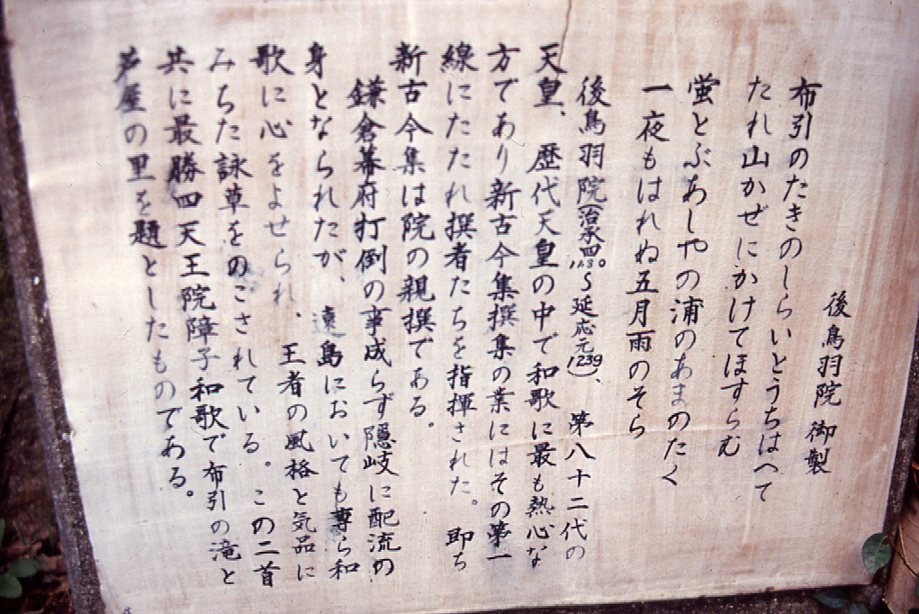 後鳥羽院 御製
布引のたきのしらいとうちはへて
たれ山かぜにかけてほすらむ
蛍とぶあしやの浦のあまのたく
一夜もはれぬ五月雨のそら
後鳥羽院(治承四1180〜延応元1239)、第八十二代の
天皇、歴代天皇の中で和歌に最も熱心な
方であり新古今集撰集の業にはその第一
線にたたれ撰者たちを指揮された。即ち
新古今集は院の親撰である。
鎌倉幕府打倒の事成らず隠岐に配流の
身となられたが、遠島においても専ら和
歌に心をよせられ、王者の風格と気品に
みちた詠草をのこされている。この二首
共に最勝四天王院障子和歌で布引の滝と
芦屋の里を題としたものである。